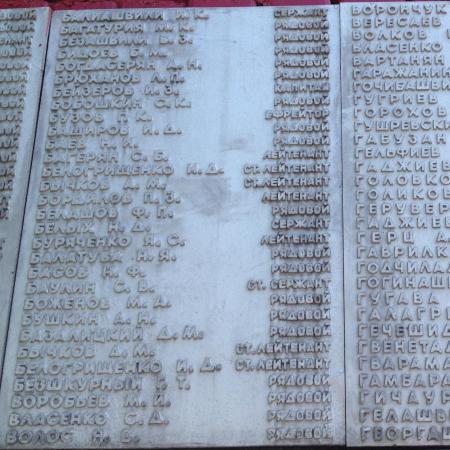 БАЛИАШВИЛИ И. К. СЕРЖАНТ
БАГАТУРИЯ М. К. РЯДОВОЙ
БЕЗАШВИЛИ В. З. РЯДОВОЙ
РЯДОВОЙ
РЯДОВОЙ
БРЮХАНОВ Л. П. РЯДОВОЙ
БЕЙЗЕРОВ И. З. КАПИТАН
БОБОШКИН С. К. РЯДОВОЙ
БУЗОВ Н. К. ЕФРЕЙТОР
БАШИРОВ И. Д. РЯДОВОЙ
БАЕВ Н. И. РЯДОВОЙ
БАГЕРЯН С. Б. ЛЕЙТЕНАНТ
БЕЛОГРИЩЕНКО И. Д. СТ. ЛЕЙТЕНАНТ
БЫЧКОВ А. М. СТ. ЛЕЙТЕНАНТ
БОРШИЛОВ П. З. ЛЕЙТЕНАНТ
БЕЛАШОВ Ф. П. РЯДОВОЙ
БЕЛЫХ Н. Д. СЕРЖАНТ
БУРЯЧЕНКО Я. С. ЛЕЙТЕНАНТ
БАЛАТУЕВ Н. Я. РЯДОВОЙ
БАСОВ Н. Ф. РЯДОВОЙ
БАУЛИН С. В. СТ. СЕРЖАНТ
БОЖЕНОВ М. А. РЯДОВОЙ
БУШКИН А. Н. РЯДОВОЙ
БАЗАЛИЦКИЙ Д. М. РЯДОВОЙ
БЫЧКОВ Д. М. СТ. ЛЕЙТЕНАНТ
БЕЛОГРИЩЕНКО И. Д. СТ. ЛЕЙТЕНАНТ
БЕЗШКУРНЫЙ Г. Т. РЯДОВОЙ
ВОРОБЬЕВ М. И. РЯДОВОЙ
ВЛАСЕНКО С. Д. РЯДОВОЙ
ВОЛОС Н. Б. РЯДОВОЙ
ВОРОНЧУК
ВЕРЕСАЕВ
ВОЛКОВ
ВЛАСЕНКО
ВАРТАНЯН
ГАРАЖАНИН
ГОЧИБАШВИ
ГУГРИЕВ
ГОРОХОВ
ГУШРЕВСКИ
ГАБУЗАН
ГЕЛЬФИЕВ
ГАДЖИЕВ
ГОЛОВКО
ГОЛИКОВ
ГЕРУВЕР
ГАДЖИЕВ
ГЕРЦ А.
ГАВРИЛК
ГОДЧИЛАД
ГОГИНАШ
ГУГАВА
ГАЛАГРИ
ГЕЧЕШИД
ГВЕНЕТАД
ГВАРАМА
ГАМБАРА
ГИЧАУР
ГЕЛАШВ
ГЕОРГАШ